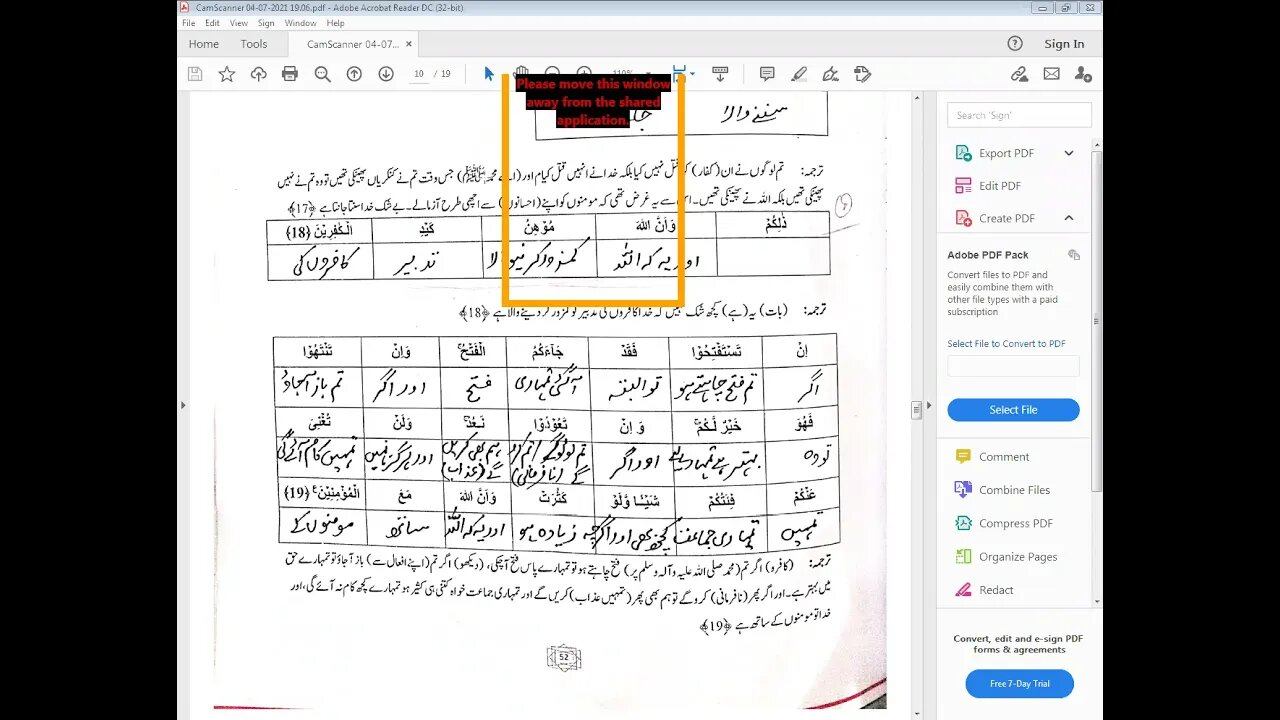 CamScanner 04-07-2021 19.06.pdf - Adobe Acrobat Reader DC (32-bit)
File Edit View Sign Window Help
Home Tools CamScanner 04-07... × Sign In
10 / 19 110%
Please move this window
away from the shared
application.
سننے والا
ترجمہ: تم لوگوں نے ان (کفار) کو قتل نہیں کیا بلکہ خدا نے انہیں قتل کیا، اور محمدﷺ) جس وقت تم نے کنکریاں پھینکی تھیں تو وہ تم نے نہیں
پھینکی تھیں بلکہ اللہ نے پھینکی تھیں۔ اس سے یہ غرض تھی کہ مومنوں کو اپنے (احسانوں) سے اچھی طرح آزمالے۔ بے شک خدا سنتا جانتا ہے ﴿17﴾
ذٰلِكُمْ وَاَنَّ اللهَ مُوْهِنُ كَيْدِ الْكٰفِرِيْنَ ﴿18﴾
اور یہ کہ اللہ کمزور کرنیوالا تدبیر کافروں کی
ترجمہ: (بات) یہ (ہے) کچھ شک نہیں کہ خدا کافروں کی تدبیر کو کمزور کر دینے والا ہے ﴿18﴾
اِنْ تَسْتَفْتِحُوْا فَقَدْ جَآءَكُمُ الْفَتْحُ وَاِنْ تَنْتَهُوْا
اگر تم فتح چاہتے ہو تو البتہ آ گئی تمہاری فتح اور اگر تم باز آجاؤ
فَهُوَ خَيْرٌ لَّكُمْ وَ اِنْ تَعُوْدُوْا نَعُدْ وَلَنْ تُغْنِىَ
تو وہ بہتر ہے تمہارے لیے اور اگر تم لوٹو گے / تم کرو گے (نافرمانی) ہم بھی کریں گے (عذاب) اور ہرگز نہیں تمہیں کام آئے گی
عَنْكُمْ فِئَتُكُمْ شَيْئًا وَّلَوْ كَثُرَتْ وَاَنَّ اللهَ مَعَ الْمُؤْمِنِيْنَ ﴿19﴾
تمہیں تمہاری جماعت کچھ بھی اور اگرچہ زیادہ ہو اور یہ کہ اللہ ساتھ مومنوں کے
ترجمہ: (کافرو) اگر تم (محمد صلی اللہ علیہ وآلہ وسلم پر) فتح چاہتے ہو تو تمہارے پاس فتح آچکی، (دیکھو) اگر تم (اپنے افعال سے) باز آجاؤ تو تمہارے حق
میں بہتر ہے۔ اور اگر پھر (نافرمانی) کرو گے تو ہم بھی پھر (تمہیں عذاب) کریں گے اور تمہاری جماعت خواہ کتنی ہی کثیر ہو تمہارے کچھ کام نہ آئے گی، اور
خدا تو مومنوں کے ساتھ ہے ﴿19﴾
52
Export PDF
Edit PDF
Create PDF
Adobe PDF Pack
Convert files to PDF and
easily combine them with
other file types with a paid
subscription
Select File to Convert to PDF
Select File
Comment
Combine Files
Compress PDF
Organize Pages
Redact
Convert, edit and e-sign PDF
forms & agreements
Free 7-Day Trial